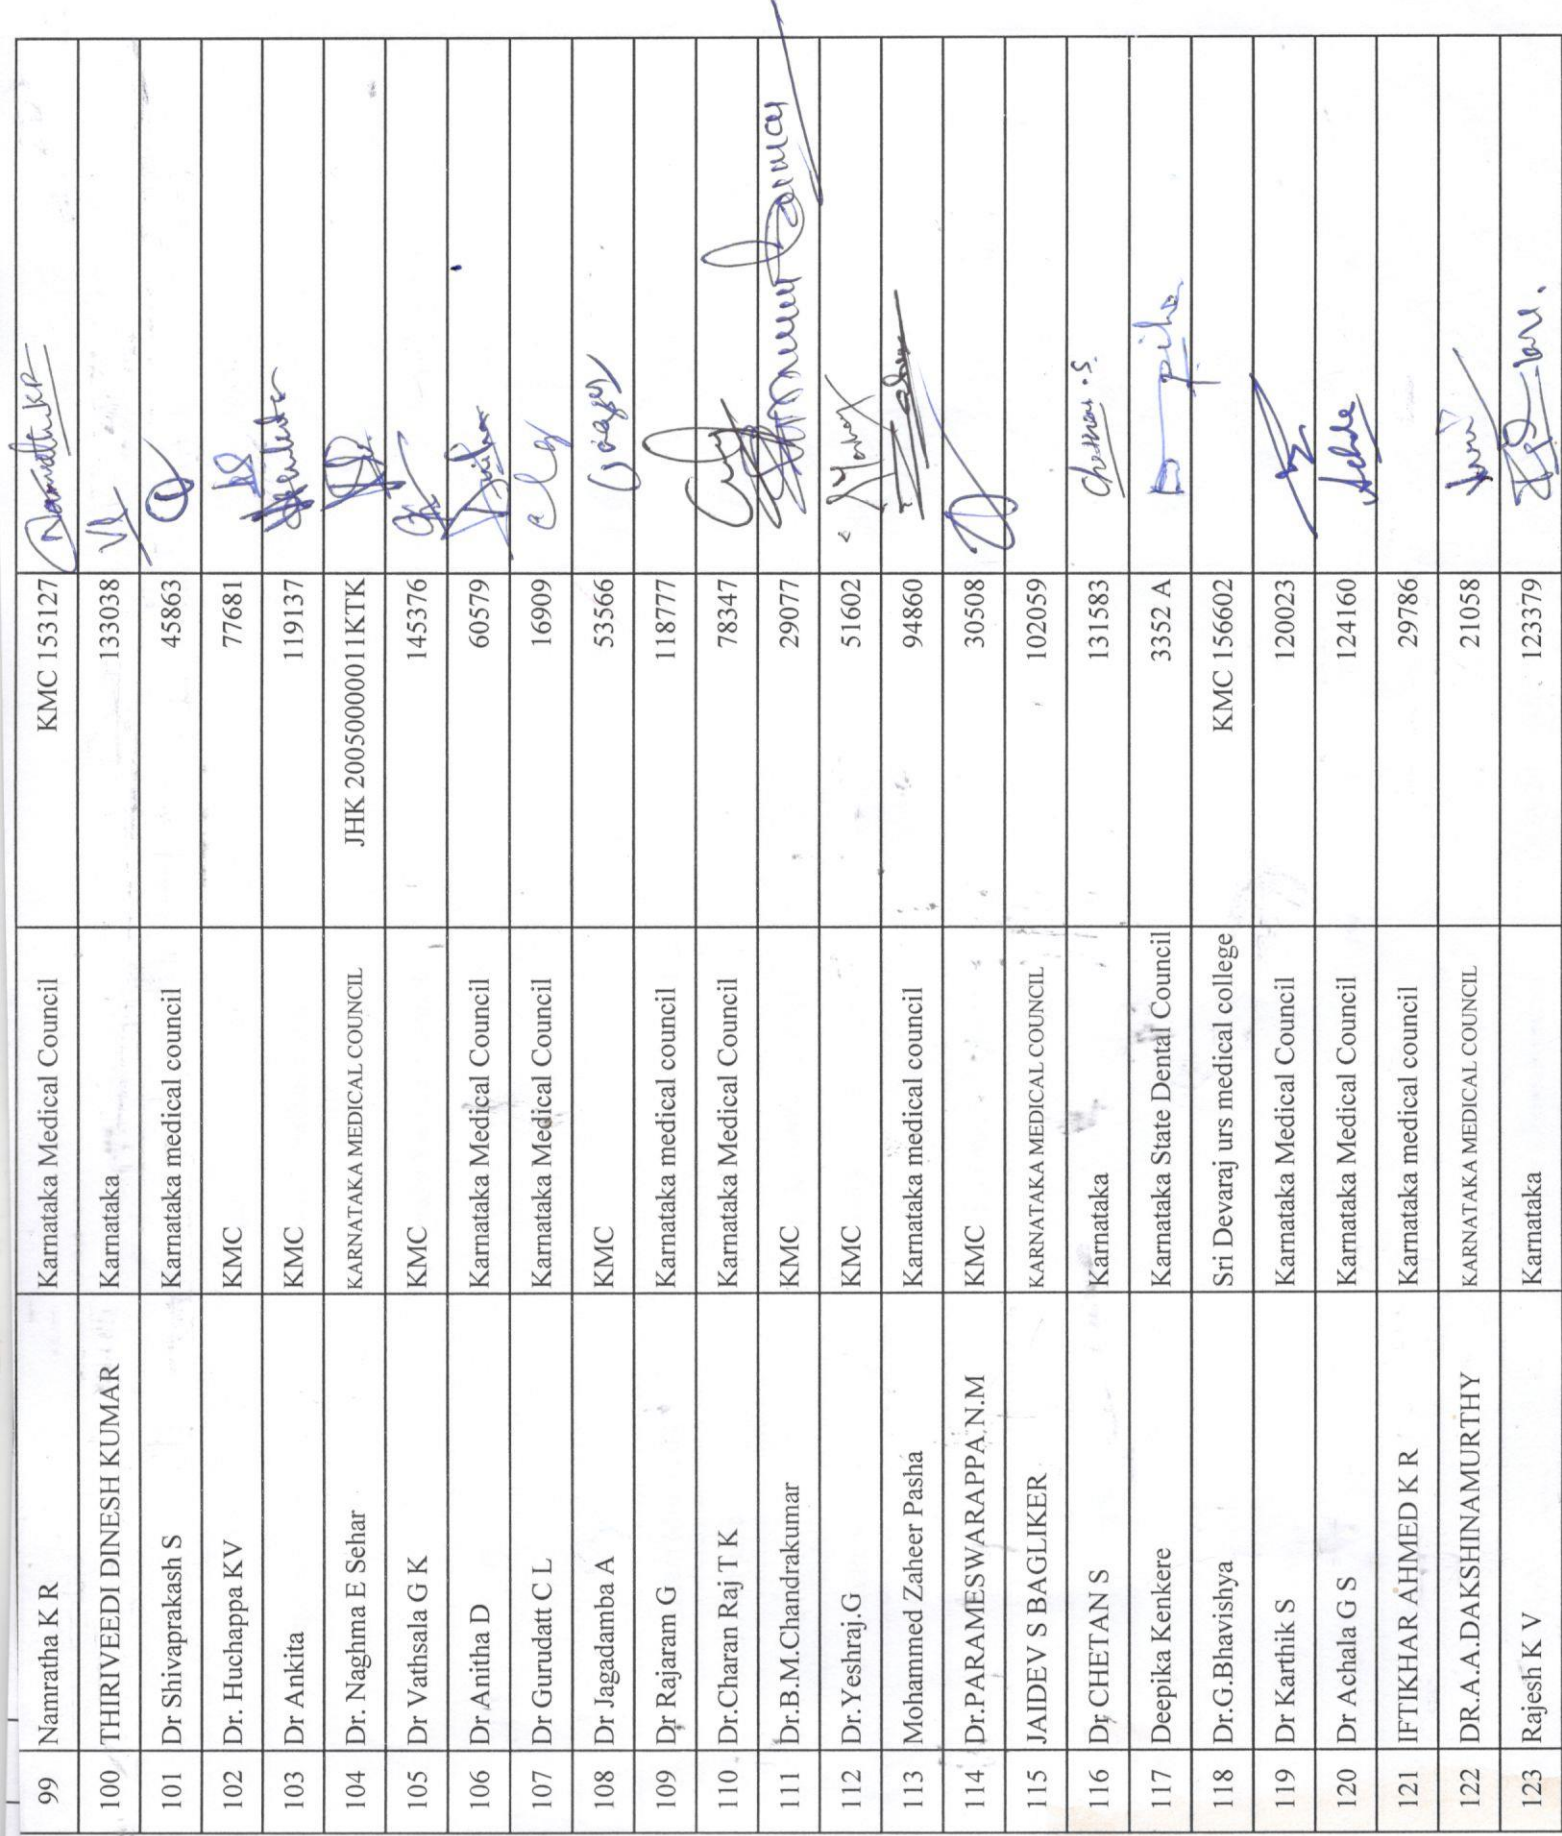 99 Namratha K R Karnataka Medical Council KMC 153127 NamrathaKR
100 THIRIVEEDI DINESH KUMAR Karnataka 133038
101 Dr Shivaprakash S Karnataka medical council 45863
102 Dr. Huchappa KV KMC 77681
103 Dr Ankita KMC 119137
104 Dr. Naghma E Sehar KARNATAKA MEDICAL COUNCIL JHK 2005000001IKTK
105 Dr Vathsala G K KMC 145376
106 Dr Anitha D Karnataka Medical Council 60579
107 Dr Gurudatt C L Karnataka Medical Council 16909
108 Dr Jagadamba A KMC 53566
109 Dr Rajaram G Karnataka medical council 118777
110 Dr.Charan Raj T K Karnataka Medical Council 78347
111 Dr.B.M.Chandrakumar KMC 29077
112 Dr.Yeshraj.G KMC 51602
113 Mohammed Zaheer Pasha Karnataka medical council 94860
114 Dr.PARAMESWARAPPA.N.M KMC 30508
115 JAIDEV S BAGLIKER KARNATAKA MEDICAL COUNCIL 102059
116 Dr CHETAN S Karnataka 131583 Chethan.S.
117 Deepika Kenkere Karnataka State Dental Council 3352 A
118 Dr.G.Bhavishya Sri Devaraj urs medical college KMC 156602
119 Dr Karthik S Karnataka Medical Council 120023
120 Dr Achala G S Karnataka Medical Council 124160
121 IFTIKHAR AHMED K R Karnataka medical council 29786
122 DR.A.A.DAKSHINAMURTHY KARNATAKA MEDICAL COUNCIL 21058
123 Rajesh K V Karnataka 123379